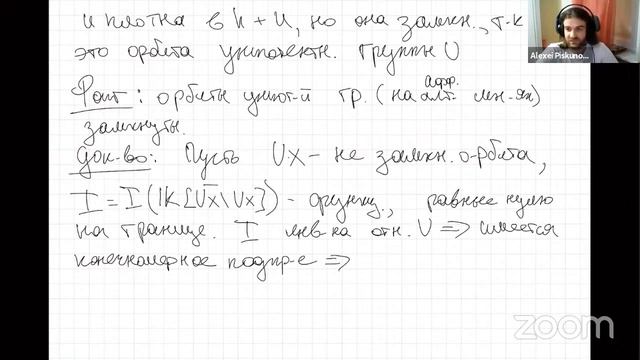 и плотна в h + U, но она замкн., т-к
это орбита унипотентн. группы U
Факт: орбиты унип-й гр. (на афф. алг. мн-ях)
замкнуты.
Док-во: Пусть Ux – не замкн. орбита,
I = I(K[U̅x̅\Ux]) – функц., равные нулю
на границе. I инв-на отн. U ⇒ имеется
конечномерное подпр-е ⇒
Alexei Piskuno...
zoom